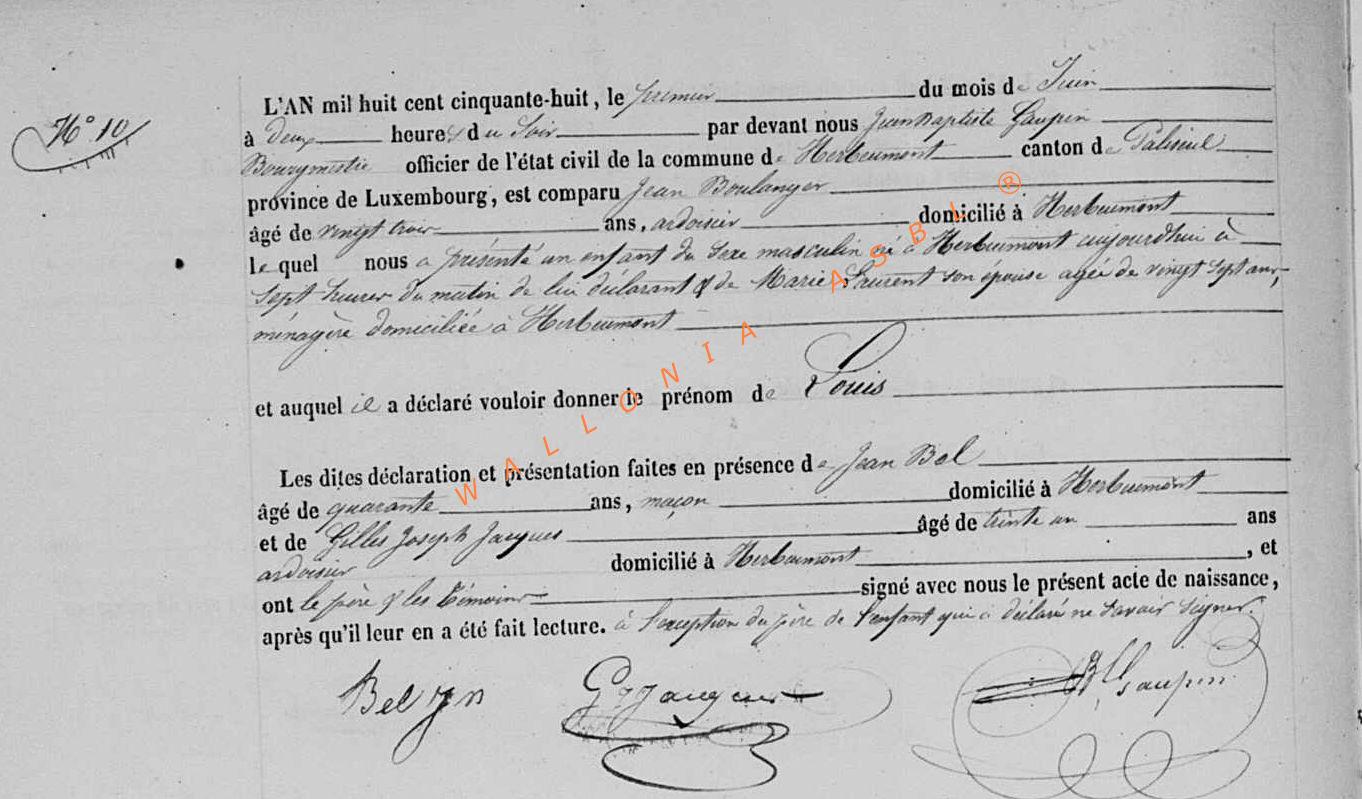 N° 10
L'AN mil huit cent cinquante-huit, le premier du mois de Juin
à deux heures du Soir par devant nous Jean Baptiste Gaupin
Bourgmestre officier de l'état civil de la commune de Herbeumont canton de Paliseul
province de Luxembourg, est comparu Jean Boulanger
âgé de vingt trois ans, ardoisier domicilié à Herbeumont
lequel nous a présenté un enfant du sexe masculin né à Herbeumont aujourdhui à
sept heures du matin de lui déclarant & de Marie Laurent son épouse agée de vingt sept ans,
ménagère domiciliée à Herbeumont
et auquel il a déclaré vouloir donner le prénom de Louis
Les dites déclaration et présentation faites en présence de Jean Bel
âgé de quarante ans, maçon domicilié à Herbeumont
et de Gilles Joseph Jacques âgé de trente un ans
ardoisier domicilié à Herbeumont, et
ont le père & les témoins signé avec nous le présent acte de naissance,
après qu'il leur en a été fait lecture. à l'exception du père de l'enfant qui a déclaré ne savoir signer.
Bel G J Jacques Gaupin
WALLONIA ASBL ®